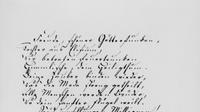 Freude, schöner Götterfunken,
Tochter aus Elisium,
Wir betreten feuertrunken
Himmlische, dein Heiligthum.
Deine Zauber binden wieder,
was die Mode streng getheilt,
alle Menschen werden Brüder,
wo dein sanfter Flügel weilt.